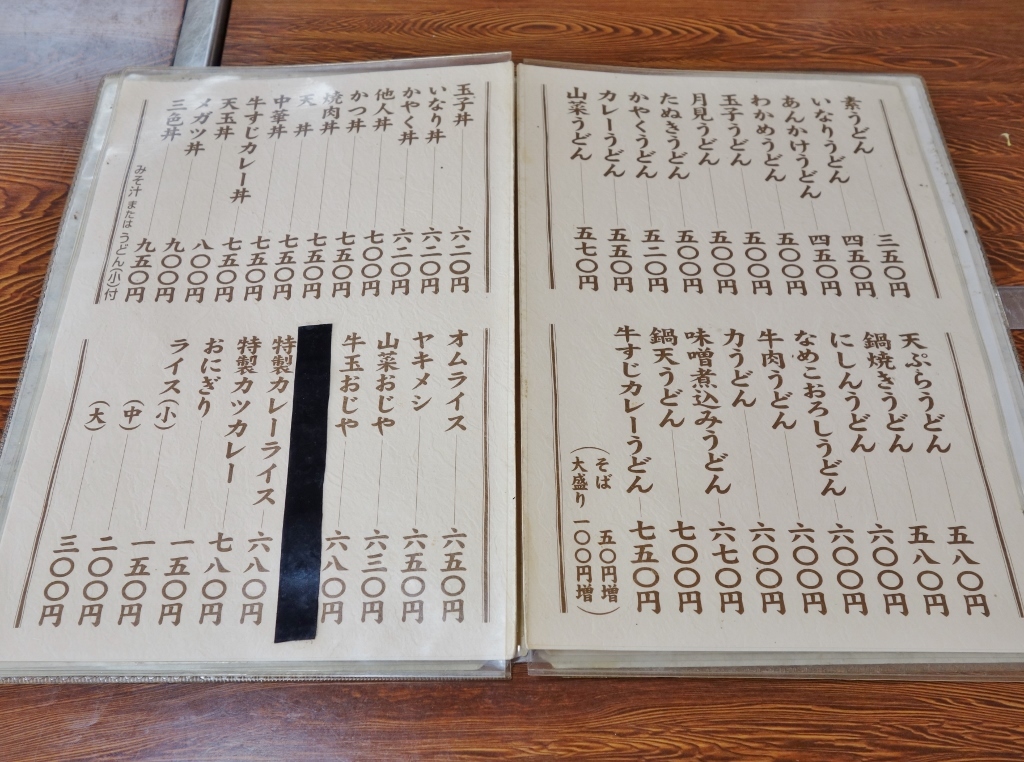 素うどん 三五〇円
いなりうどん 四五〇円
あんかけうどん 四五〇円
わかめうどん 五〇〇円
玉子うどん 五〇〇円
月見うどん 五〇〇円
たぬきうどん 五〇〇円
かやくうどん 五二〇円
カレーうどん 五五〇円
山菜うどん 五七〇円
天ぷらうどん 五八〇円
鍋焼きうどん 五八〇円
にしんうどん 六〇〇円
なめこおろしうどん 六〇〇円
牛肉うどん 六〇〇円
力うどん 六〇〇円
味噌煮込みうどん 六七〇円
鍋天うどん 七〇〇円
牛すじカレーうどん 七五〇円
(そば 五〇円増
大盛り 一〇〇円増)
玉子丼 六二〇円
いなり丼 六二〇円
かやく丼 六二〇円
他人丼 七〇〇円
かつ丼 七五〇円
焼肉丼 七五〇円
天丼 七五〇円
中華丼 七五〇円
牛すじカレー丼 七五〇円
天玉丼 八〇〇円
メガツ丼 九〇〇円
三色丼 九五〇円
みそ汁 または うどん(小)付
オムライス 六五〇円
ヤキメシ 六五〇円
山菜おじや 六三〇円
牛玉おじや 六八〇円
特製カレーライス 六八〇円
特製カツカレー 七八〇円
おにぎり 一五〇円
ライス(小) 一五〇円
(中) 二〇〇円
(大) 三〇〇円